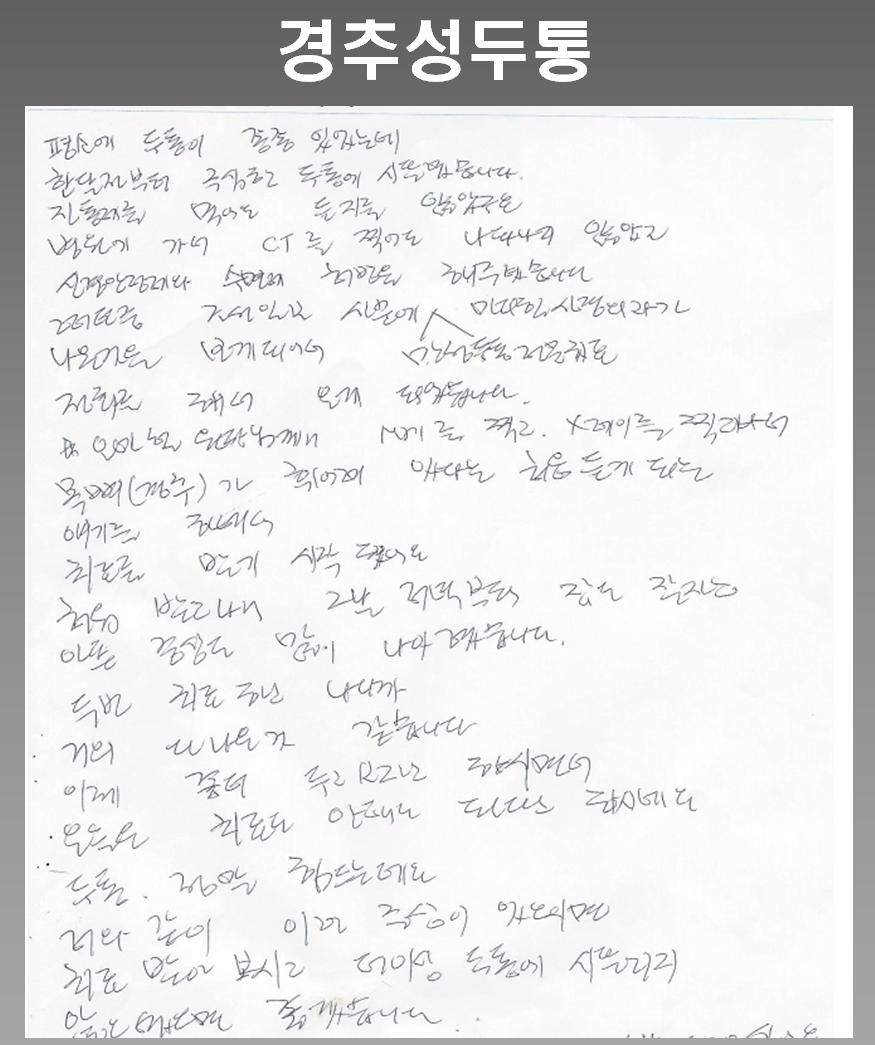 경추성두통
평소에 두통이 종종 있었는데
한달전부터 극심한 두통에 시달렸습니다.
진통제를 먹어도 듣지를 않았구요
병원에 가서 CT를 찍어도 나타나지 않았고
신경안정제와 수면제 처방을 해주었습니다
그러던중 조선일보 신문에
나온것을 보게되어서 만성두통전문치료
전화를 해서 오게 되었습니다.
원장님께서 MRI를 찍고. X레이를 찍더라니
목뼈(경추)가 휘어져 있다는 처음 듣게 되는
얘기를 하셔서
치료를 받기 시작 했어요
처음 받고나서 그날 저녁부터 잠도 잘자고
아픈 증상도 많이 나아졌습니다.
두번 치료 하고 나니까
거의 다 나은거 같습니다
이제 좀더 두고 보자고 하시면서
오늘은 치료도 안해도 되겠다 하시네요
두통. 정말 힘드는데요
저와 같이 이런 증상이 있으시면
치료 받아 보시고 더이상 두통에 시달리지
않으셨으면 좋겠습니다.